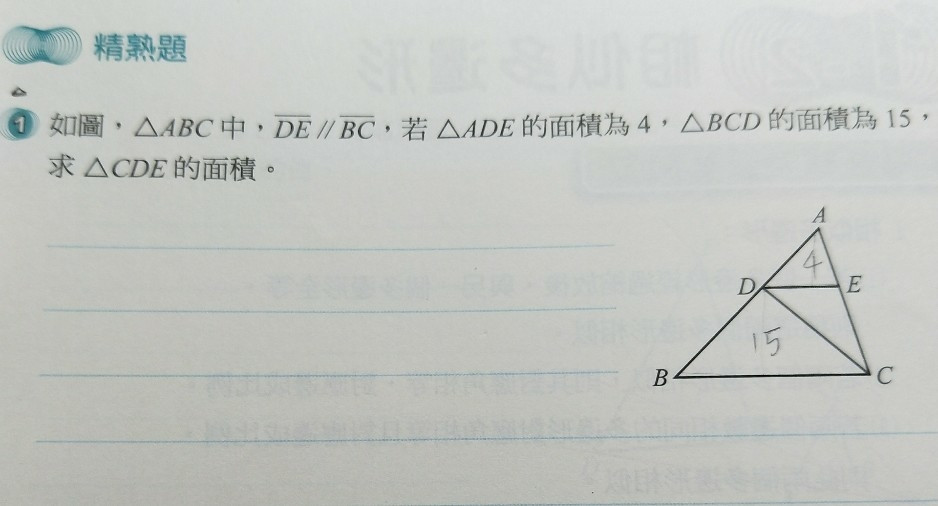 精熟題
1 如圖，△ABC 中，DE // BC，若 △ADE 的面積為 4，△BCD 的面積為 15，
求 △CDE 的面積。
A
4
D E
15
B C